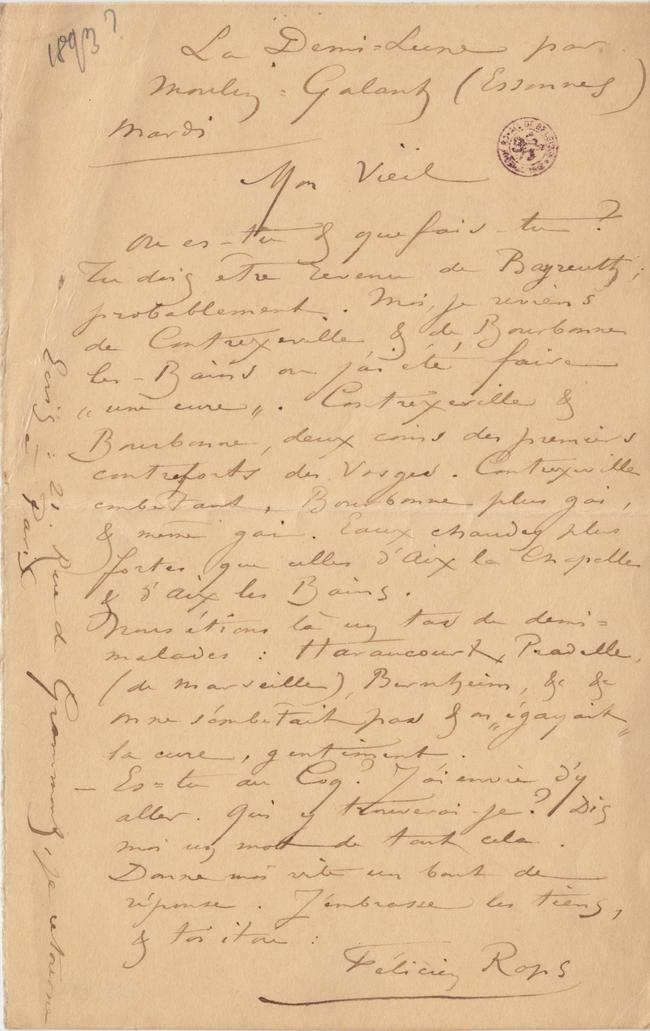 1893?
La Demi=Lune par
Moulin=Galant (Essonnes)
Mardi
Mon Vieil
Ou es-tu & que fais-tu ?
Tu dois être revenu de Bayreuth ;
probablement. Moi, je reviens
de Contrexeville & de Bourbonne
les-Bains ou j'ai été faire
„une cure„. Contrexeville &
Bourbonne, deux coins des premiers
contreforts des Vosges. Contrexeville
embêtant, Bourbonne plus gai,
& même gai. Eaux chaudes plus
fortes que celles d'Aix la Chapelle
& d'Aix les Bains.
Nous étions là un tas de demi=
malades : Haraucourt, Pradelle,
(de Marseille), Bernheim, &c &c
on ne s'embêtait pas & on „égayait„
la cure, gentiment.
— Es=tu au Coq? J'ai envie d'y
aller. Qui y trouverai-je? Dis
moi un mot de tout cela.
Donne moi vite un bout de
réponse. J'embrasse les tiens,
& toi itou :
Félicien Rops
Ecris : 21. Rue de Grammont, je retourne
à Paris